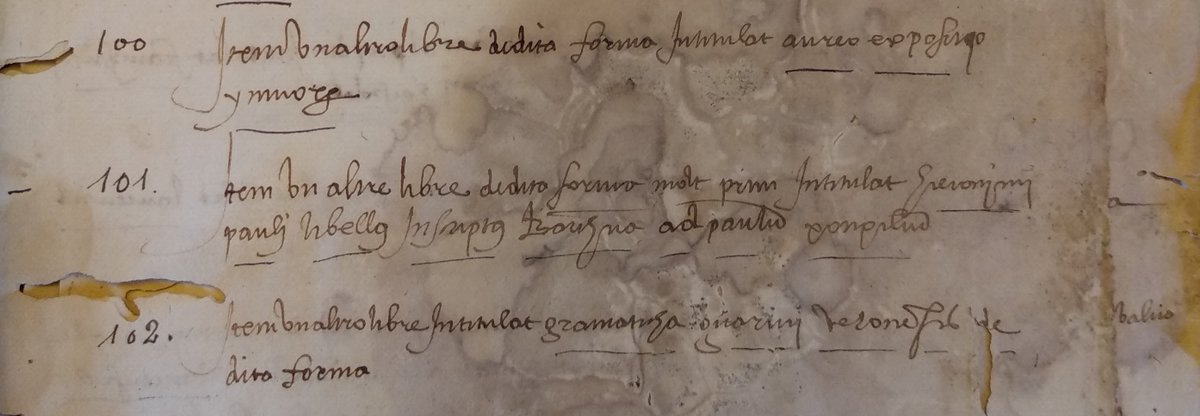 100 Item vn altro libre de dita forma Intitulat aureo expositio
ymnorȝ
101. Item vn altre libre de dita forma molt primi Intitulat hieronimi
pauli libellꝰ Inscriptꝰ Barchᵃ ad paulũ pompilũ
102. Item vn altro libre Intitulat gramaticha guarini veronēsis de
dita forma